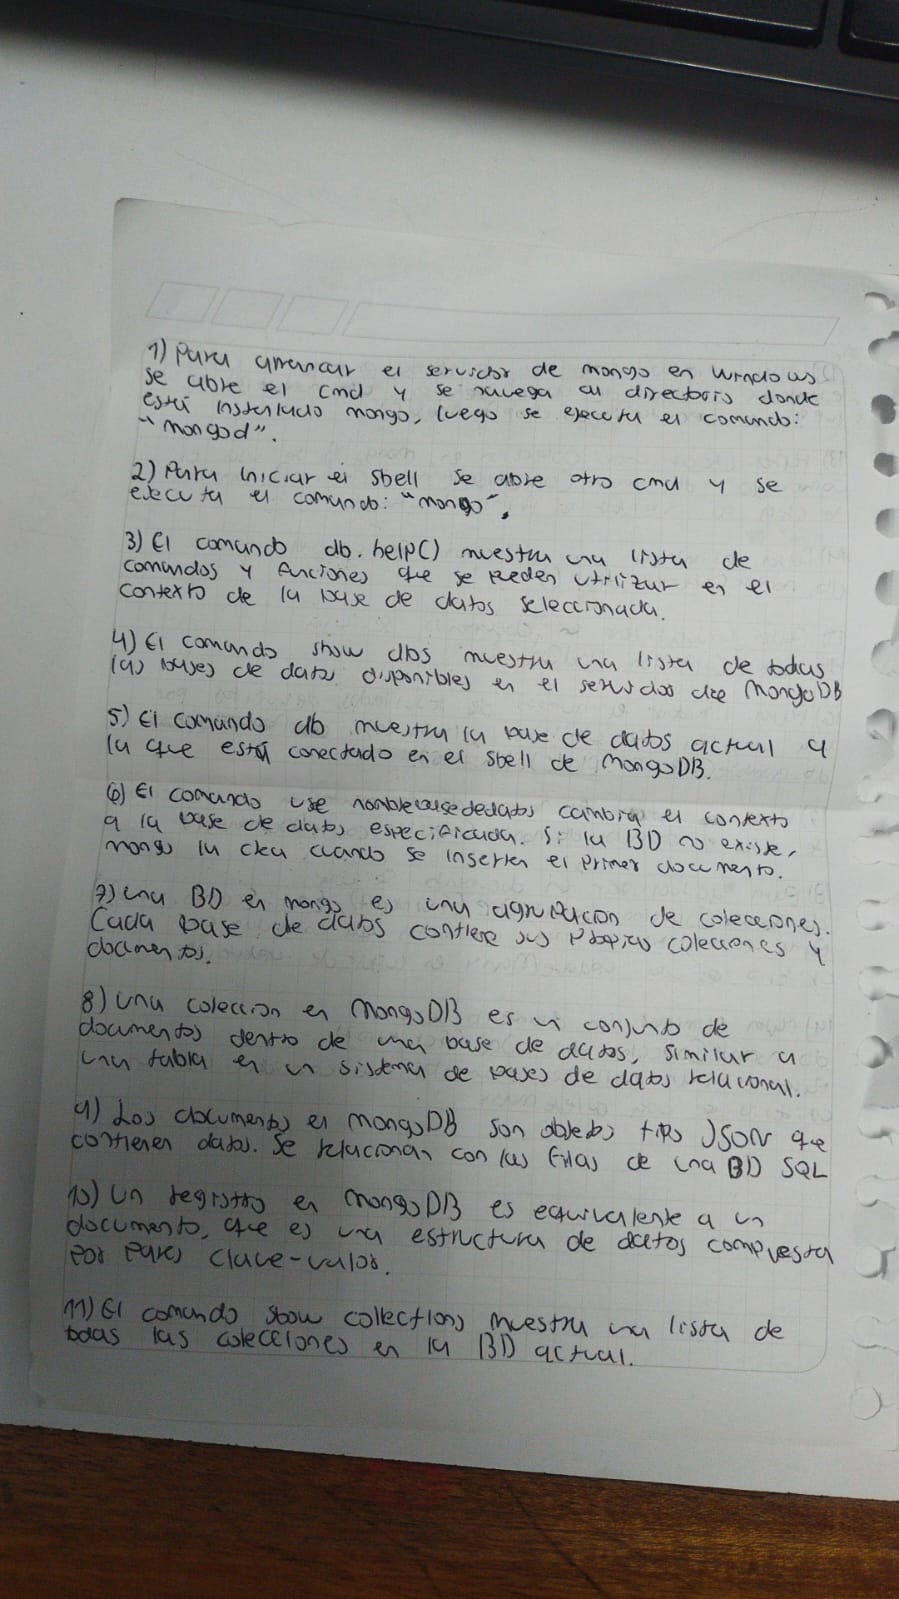 1) Para arrancar el servidor de mongo en Windows
se abre el cmd y se navega al directorio donde
está instalado mongo, luego se ejecuta el comando:
"mongod".
2) Para iniciar el shell se abre otro cmd y se
ejecuta el comando: "mongo".
3) El comando db.help() muestra una lista de
comandos y funciones que se pueden utilizar en el
contexto de la base de datos seleccionada.
4) El comando show dbs muestra una lista de todas
las bases de datos disponibles en el servidor de MongoDB
5) El comando db muestra la base de datos actual a
la que está conectado en el shell de MongoDB.
6) El comando use nombrebasededatos cambia el contexto
a la base de datos especificada. Si la BD no existe,
mongo la crea cuando se inserta el primer documento.
7) Una BD en mongo es una agrupación de colecciones.
Cada base de datos contiene sus propias colecciones y
documentos.
8) Una colección en MongoDB es un conjunto de
documentos dentro de una base de datos, similar a
una tabla en un sistema de bases de datos relacional.
9) Los documentos en MongoDB son objetos tipo JSON que
contienen datos. Se relacionan con las filas de una BD SQL
10) Un registro en MongoDB es equivalente a un
documento, que es una estructura de datos compuesta
por pares clave-valor.
11) El comando show collections muestra una lista de
todas las colecciones en la BD actual.